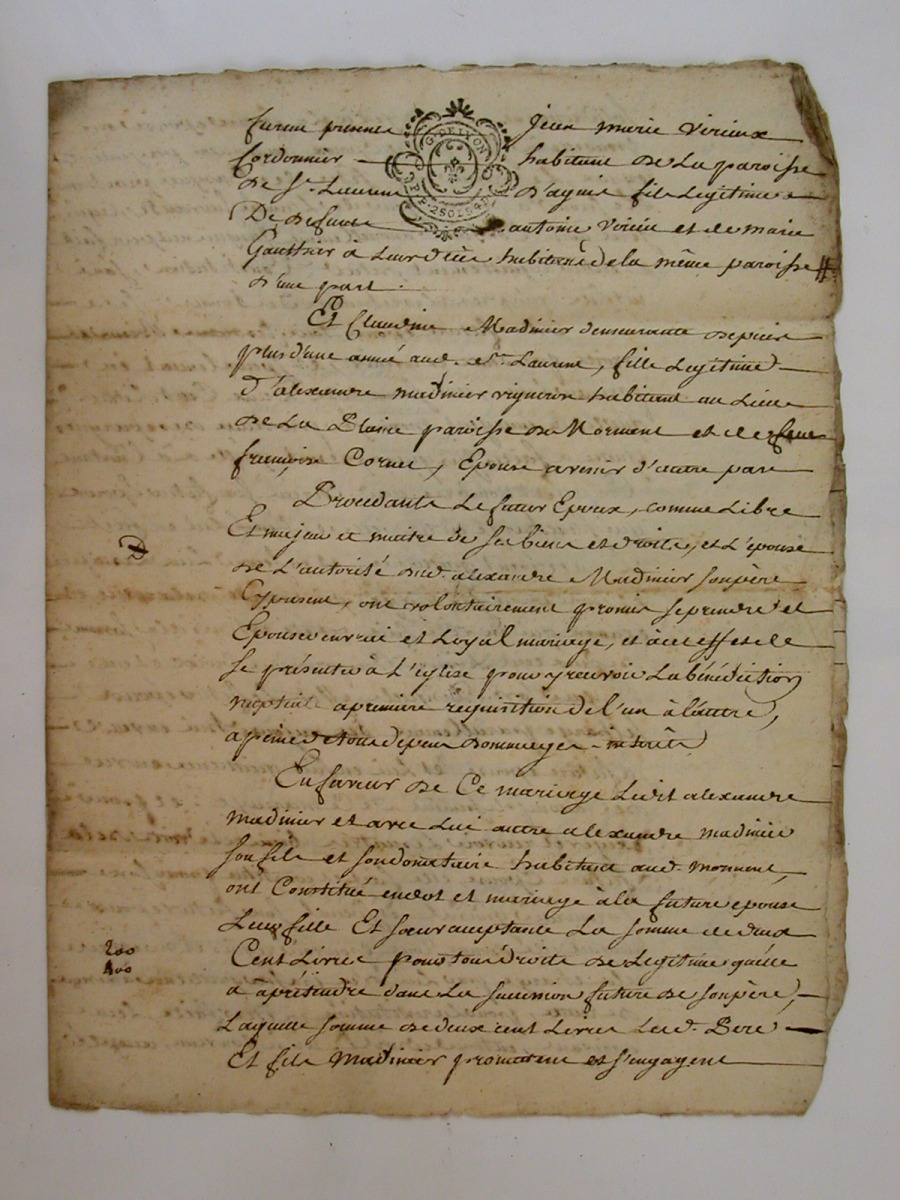 furent présents Jean marie Virieux
Cordonnier habitant de La paroisse
G. DE LYON
de St. Laurent d'agnie fils Legitime
De defunt antoine Virieu et de marie
Gautthier à Leur décè habitans de la même paroisse
d'une part.
Et Claudine Madinier demeurante depuis
plus d'une anné aud. St. Laurent, fille Legitime
d'alexandre madinier vigneron habitant au Lieu
de La Plaine paroisse de Mornant et de feue
françoise Cornet, Epouse avenir d'autre part
Procedants Le futur Epoux, comme Libre
Et majeur et maitre de ses biens et droits, et L'épouse
de L'autorité dud. alexandre Madinier son père
Cy present, ont volontairement promis se prendre et
Epouser en vrai et Loyal mariage, et à cet effet de
se présenter à L'église pour y recevoir La bénédiction
nuptiale a premiere réquisition de l'un à l'autre,
a peine de tous depens dommages interets
En faveur de Ce mariage Ledit alexandre
madinier et avec Lui autre alexandre madinier
son fils et son donataire habitant aud. mornant,
ont Constitué en dot et mariage à la future epouse
Leur fille Et soeur acceptante La somme de deux
200
Cent Livres pour tous droits de Legitime qu'elle
à à prétendre dans La succession future de son père,
Laquelle somme de deux cent Livres Lesd. Pere
Et fils Madinier promettent et s'engagent